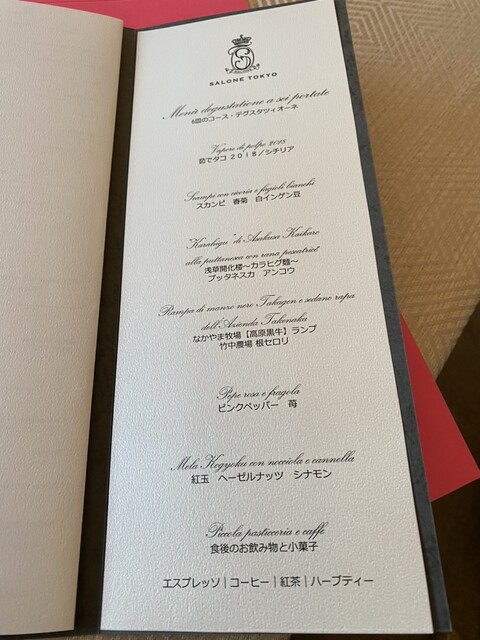 SALONE TOKYO
Menù degustazione a sei portate
6皿のコース・デグスタツィオーネ
Vapore di polpo 2018
茹でタコ 2018/シチリア
Scampi con cicoria e fagioli bianchi
スカンピ 春菊 白インゲン豆
"Karahigu" di Asakusa Kaikaro
alla puttanesca con rana pescatrice
浅草開化楼～カラヒグ麺～
プッタネスカ アンコウ
Rampa di manzo nero Takagen e sedano rapa
dell'Azienda Takenaka
なかやま牧場【高原黒牛】ランプ
竹中農場 根セロリ
Pepe rosa e fragola
ピンクペッパー 苺
Mela Kogyoku con nocciola e cannella
紅玉 ヘーゼルナッツ シナモン
Piccola pasticceria e caffè
食後のお飲み物と小菓子
エスプレッソ|コーヒー|紅茶|ハーブティー